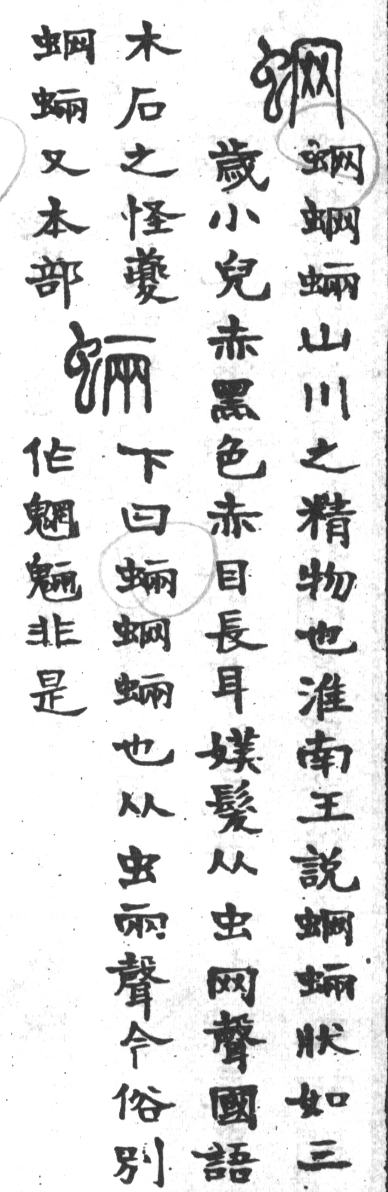 蝄
蝄蝄蜽山川之精物也淮南王說蝄蜽狀如三
歲小兒赤黑色赤目長耳媄髮从虫网聲國語
木石之怪夔
蝄蜽又本部
蜽
下曰蜽蝄蜽也从虫㒳聲今俗別
作魍魎非是